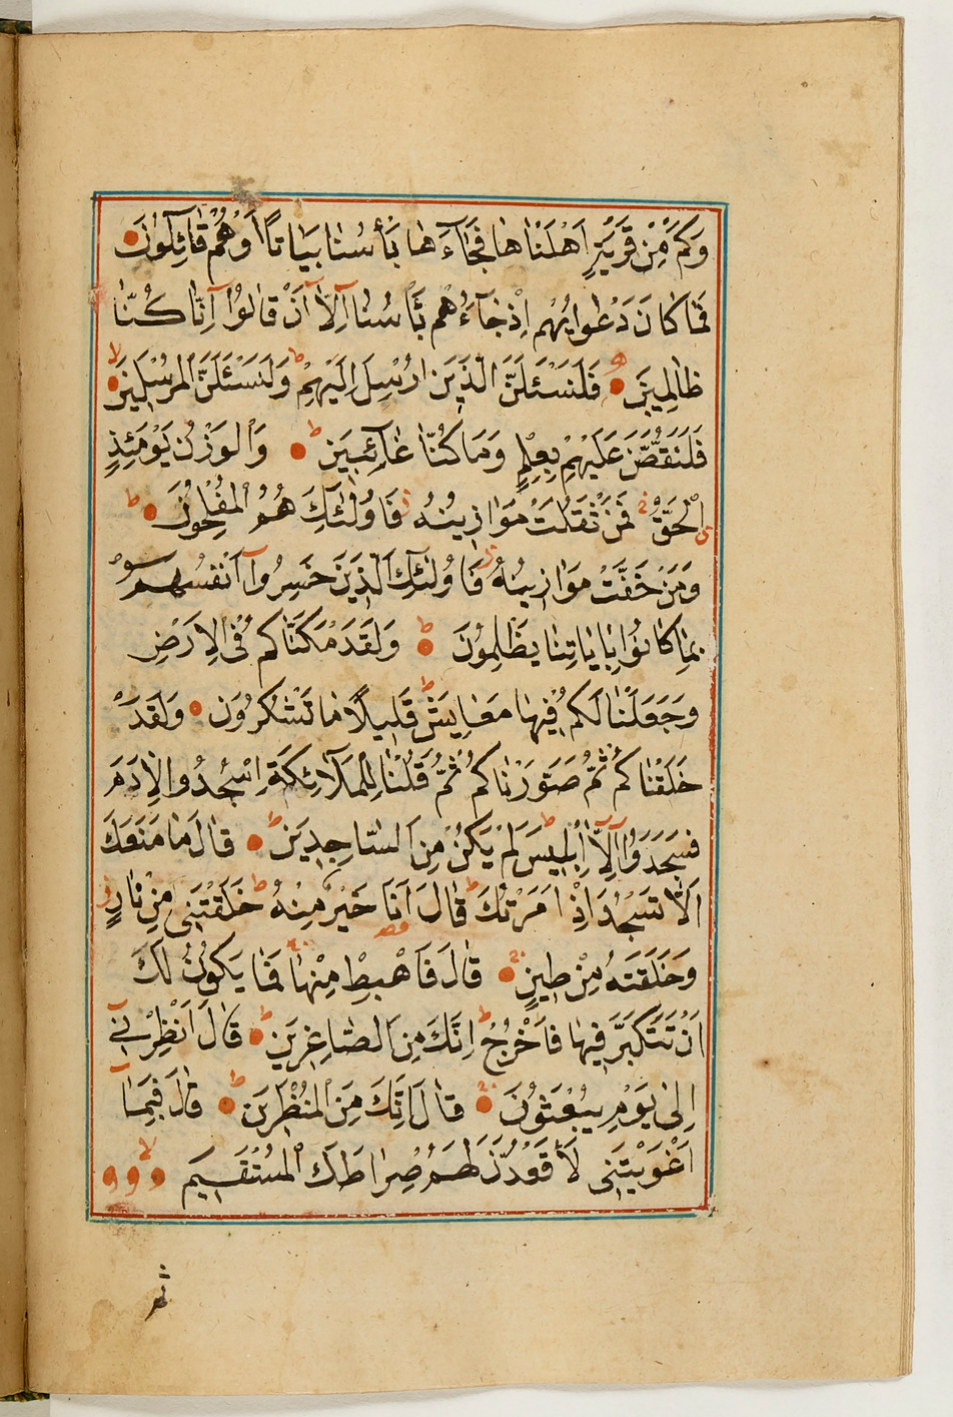 وَكَمْ مِنْ قَرْيَةٍ اَهْلَكْنَاهَا فَجَآءَهَا بَأْسُنَا بَيَاتًا اَوْ هُمْ قَائِلُونَ
فَمَا كَانَ دَعْوَايهُمْ اِذْ جَآءَهُمْ بَأْسُنَا اِلَّا اَنْ قَالُوا اِنَّا كُنَّا
ظَالِمِينَ فَلَنَسْئَلَنَّ الَّذِينَ اُرْسِلَ اِلَيْهِمْ وَلَنَسْئَلَنَّ الْمُرْسَلِينَ
فَلَنَقُصَّنَّ عَلَيْهِمْ بِعِلْمٍ وَمَا كُنَّا غَآئِبِينَ وَالْوَزْنُ يَوْمَئِذٍ
الْحَقُّ فَمَنْ ثَقُلَتْ مَوَازِينُهُ فَاُولٰئِكَ هُمُ الْمُفْلِحُونَ
وَمَنْ خَفَّتْ مَوَازِينُهُ فَاُولٰئِكَ الَّذِينَ خَسِرُوا اَنْفُسَهُمْ
بِمَا كَانُوا بِاٰيَاتِنَا يَظْلِمُونَ وَلَقَدْ مَكَّنَّاكُمْ فِى الْاَرْضِ
وَجَعَلْنَا لَكُمْ فِيهَا مَعَايِشَ قَلِيلًا مَا تَشْكُرُونَ وَلَقَدْ
خَلَقْنَاكُمْ ثُمَّ صَوَّرْنَاكُمْ ثُمَّ قُلْنَا لِلْمَلَآئِكَةِ اسْجُدُوا لِاٰدَمَ
فَسَجَدُوا اِلَّا اِبْلِيسَ لَمْ يَكُنْ مِنَ السَّاجِدِينَ قَالَ مَا مَنَعَكَ
اَلَّا تَسْجُدَ اِذْ اَمَرْتُكَ قَالَ اَنَا خَيْرٌ مِنْهُ خَلَقْتَنِى مِنْ نَارٍ
وَخَلَقْتَهُ مِنْ طِينٍ قَالَ فَاهْبِطْ مِنْهَا فَمَا يَكُونُ لَكَ
اَنْ تَتَكَبَّرَ فِيهَا فَاخْرُجْ اِنَّكَ مِنَ الصَّاغِرِينَ قَالَ اَنْظِرْنِى
اِلٰى يَوْمِ يُبْعَثُونَ قَالَ اِنَّكَ مِنَ الْمُنْظَرِينَ قَالَ فَبِمَا
اَغْوَيْتَنِى لَاَقْعُدَنَّ لَهُمْ صِرَاطَكَ الْمُسْتَقِيمَ
ثم